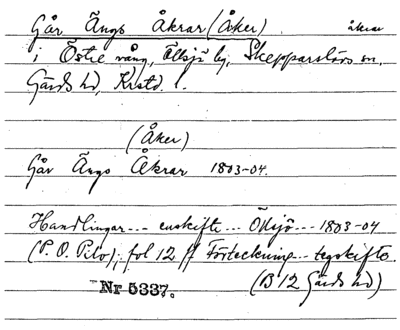 Går Ängs Åkrar (Åker) åkrar
i Östre vång, Öllsjö by, Skepparslövs sn.
Gärds hd, Krstd. l.
(Åker)
Går Ängs Åkrar 1803-04.
Handlingar --- enskifte --- Öllsjö --- 1803-04
(P. O. Pilo); fol 12 ff Förteckning --- tegskifte.
Nr 5337. (B 12 Gärds hd)